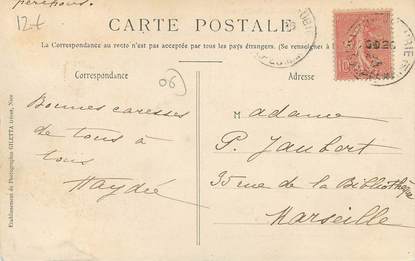 12f
CARTE POSTALE
La Correspondance au recto n'est pas acceptée par tous les pays étrangers. (Se renseigner à la
Correspondance
Adresse
06
Bonnes caresses
de tous à
tous
Haydée
Madame
P. Jaubert
35 rue de la Bibliothèque
Marseille
Etablissement de Photographies GILETTA frères, Nice